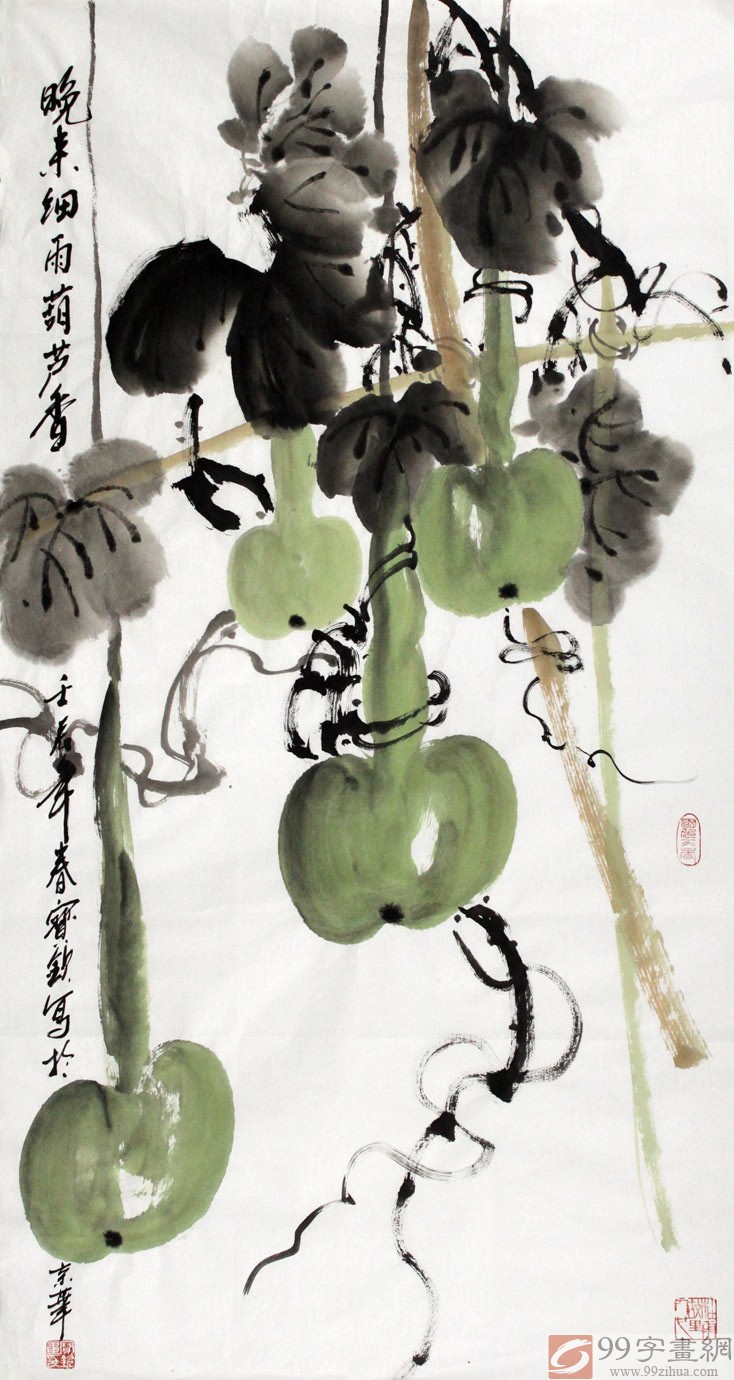 晚来细雨葫芦香
壬辰年春宝钦写於
京華
99字畫網
www.99zihua.com